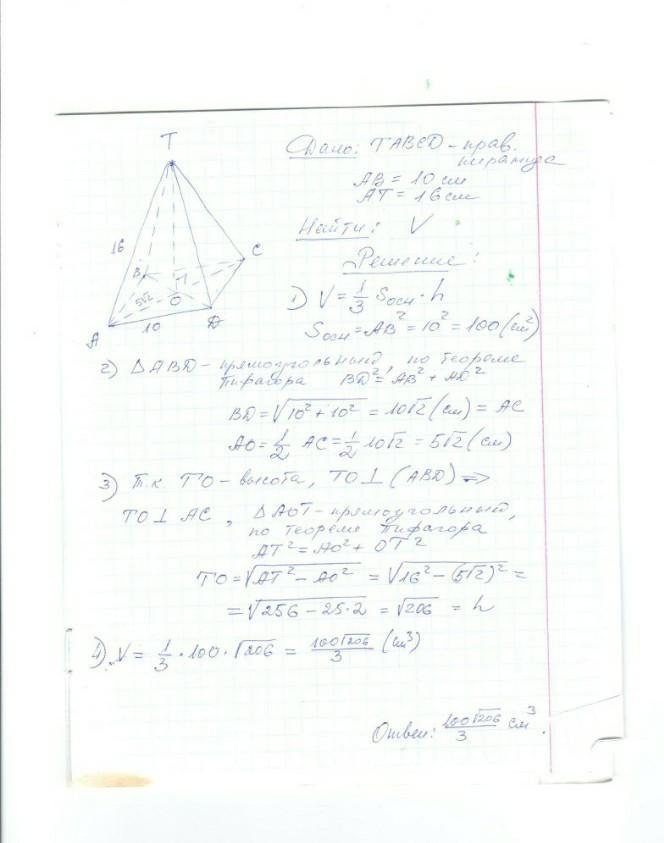 T
16
B
C
5√2
O
A
10
D
Дано: TABCD – прав.
пирамида
AB = 10 см
AT = 16 см
Найти: V
Решение:
1) V = 1/3 Sосн · h
Sосн = AB² = 10² = 100 (см²)
2) ΔABD – прямоугольный, по теореме
Пифагора BD² = AB² + AD²
BD = √(10² + 10²) = 10√2 (см) = AC
AO = 1/2 AC = 1/2 10√2 = 5√2 (см)
3) Т.к. TO – высота, TO ⊥ (ABD) ⇒
TO ⊥ AC, ΔAOT – прямоугольный,
по теореме Пифагора
AT² = AO² + OT²
TO = √(AT² – AO²) = √(16² – (5√2)²) =
= √(256 – 25·2) = √206 = h
4) V = 1/3 · 100 · √206 = 100√206/3 (см³)
Ответ: 100√206/3 см³.